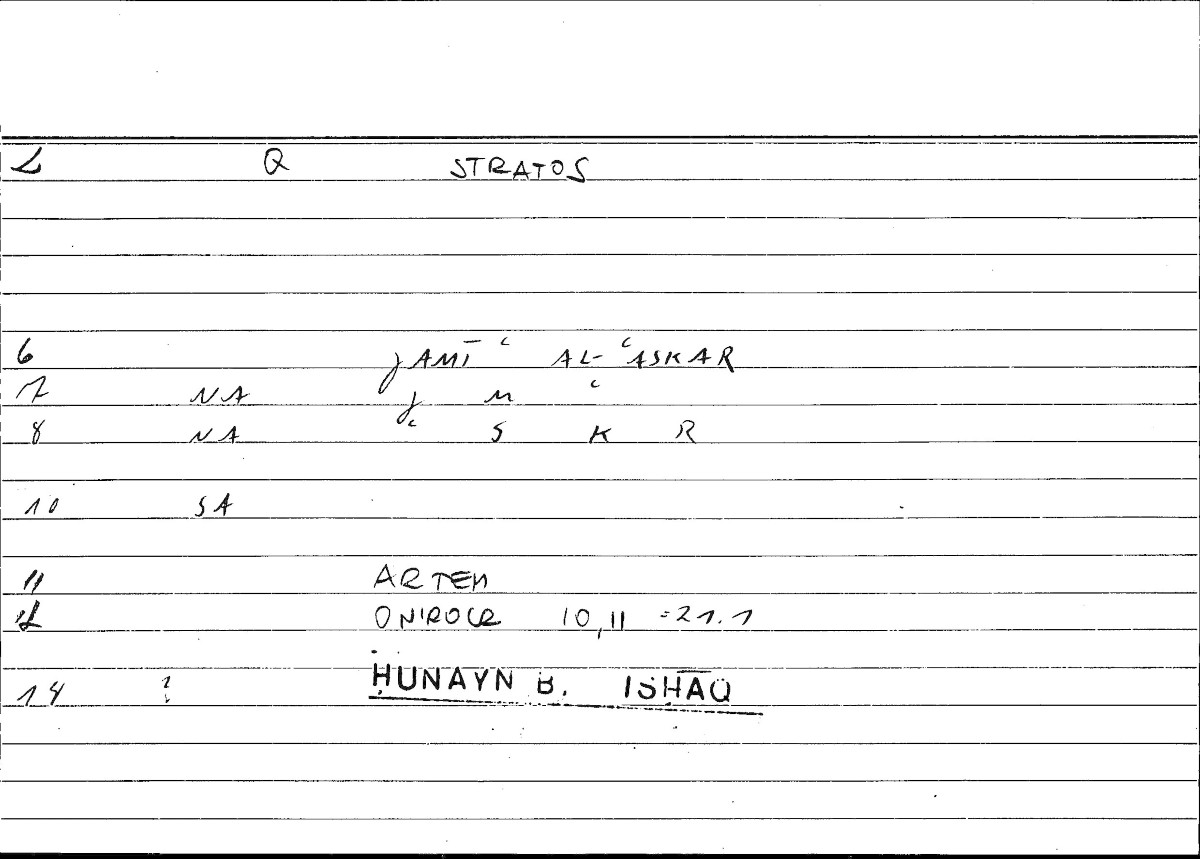 L Q STRATOS
6 JAMĪʿ AL-ʿASKAR
7 NA J M ʿ
8 NA ʿ S K R
10 SA
11 ARTEM
12 ONIROCR 10,11 = 21.1
14 ? ḤUNAYN B. ISḤĀQ